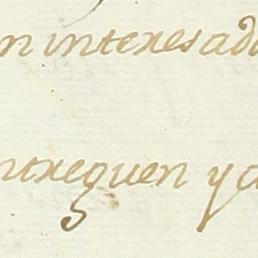 n interesado
ntreguen y a